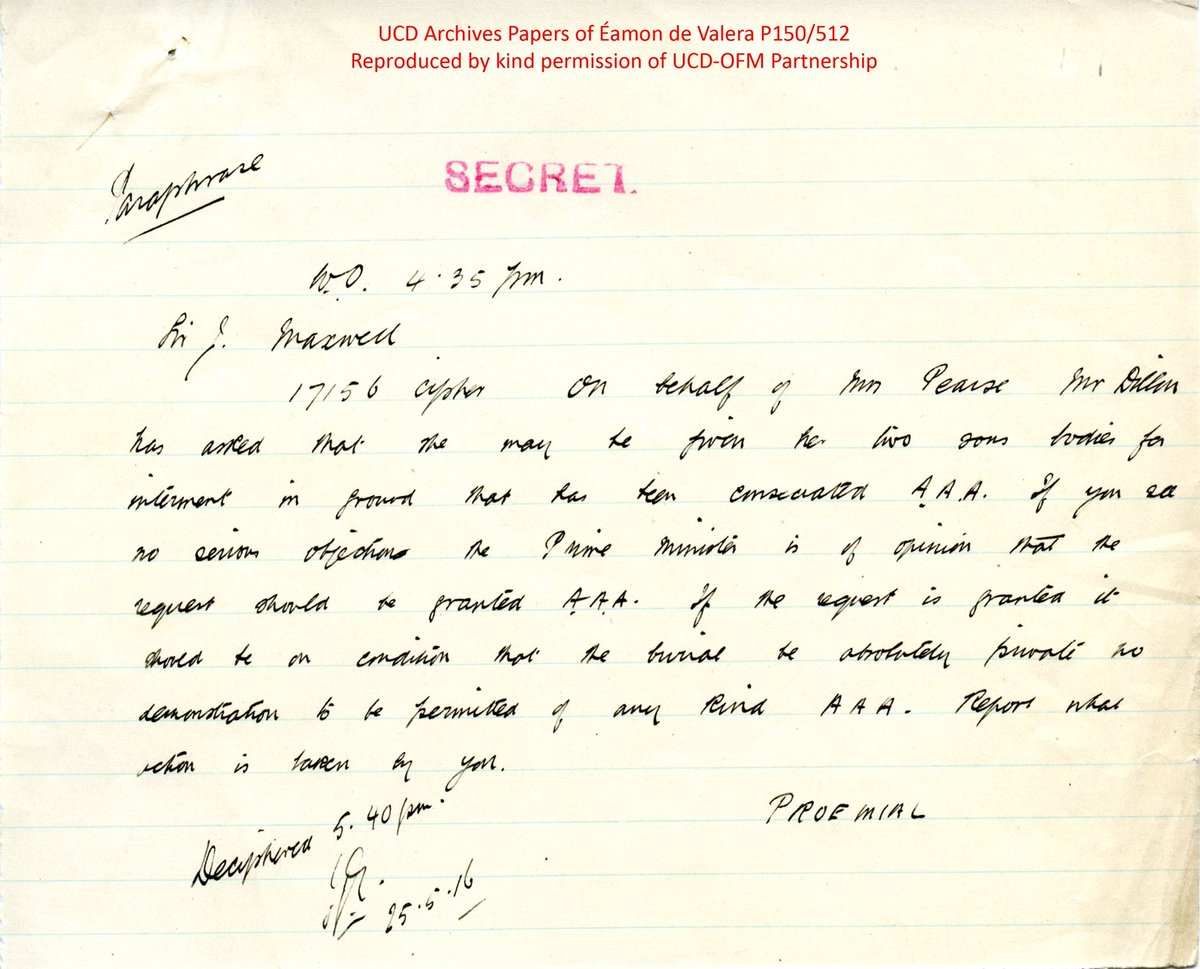 UCD Archives Papers of Éamon de Valera P150/512
Reproduced by kind permission of UCD-OFM Partnership
Paraphrase
SECRET.
W.O. 4.35 pm.
Sir J. Maxwell
17156 cipher On behalf of Mrs Pearse Mr Dillon
has asked that she may be given her two sons bodies for
interment in ground that has been consecrated A.A.A. If you see
no serious objections the Prime Minister is of opinion that the
request should be granted A.A.A. If the request is granted it
should be on condition that the burial be absolutely private no
demonstration to be permitted of any kind A A A. Report what
action is taken by you.
PROEMIAL
Deciphered 5.40 pm.
25.5.16